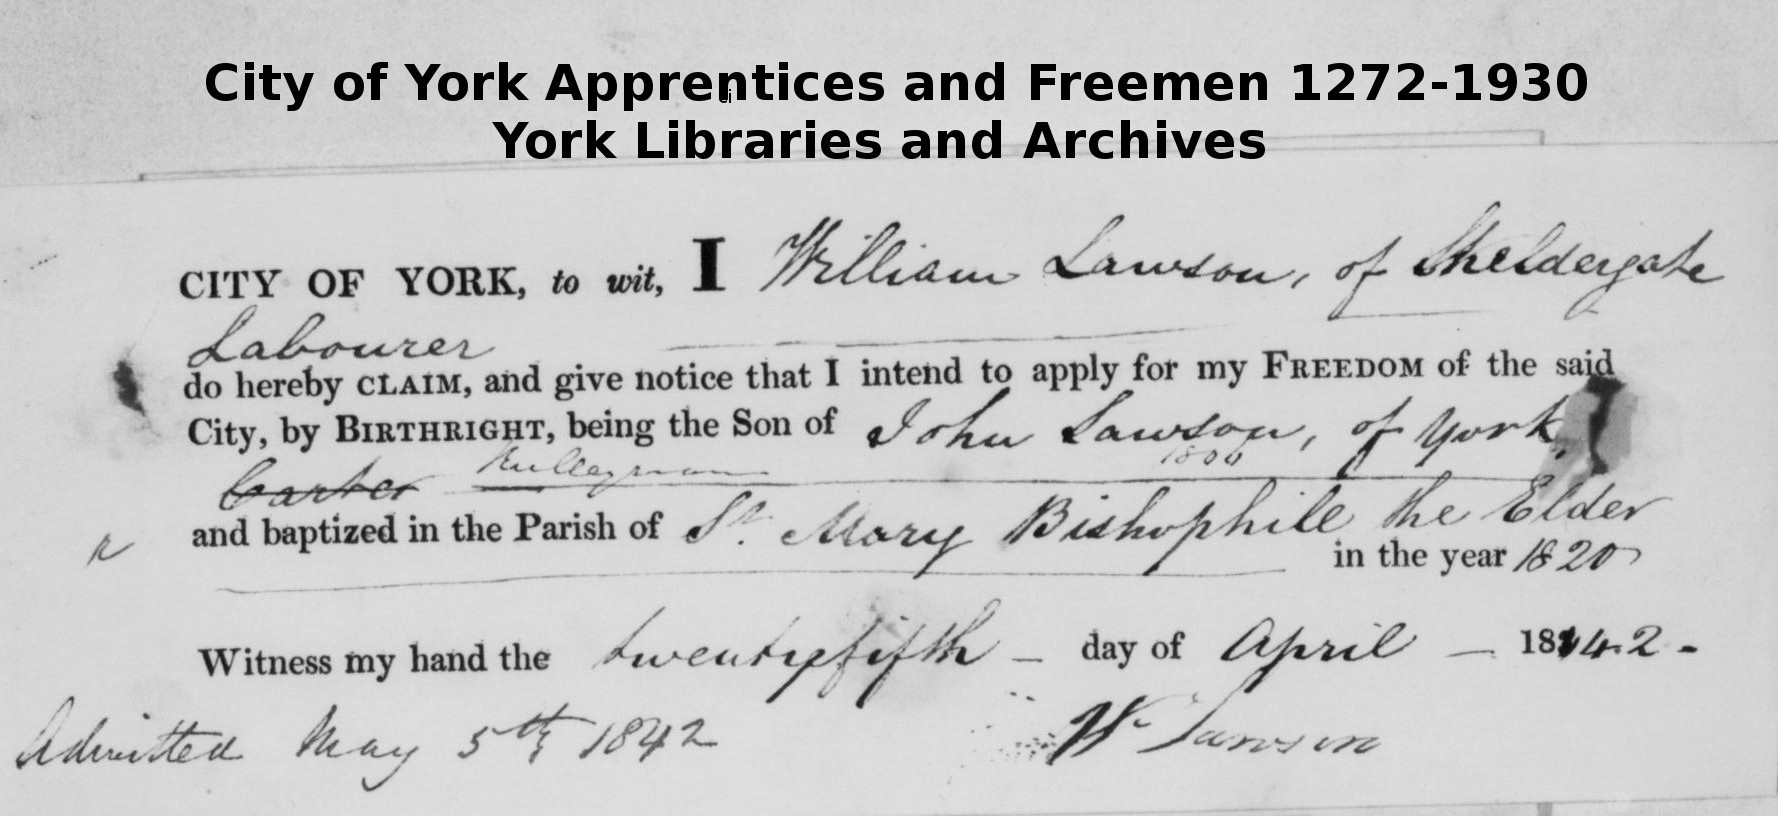 City of York Apprentices and Freemen 1272-1930
York Libraries and Archives
CITY OF YORK, to wit, I William Lawson, of Skeldergate
Labourer
do hereby CLAIM, and give notice that I intend to apply for my FREEDOM of the said
City, by BIRTHRIGHT, being the Son of John Lawson, of York
1806
Carter
and baptized in the Parish of St. Mary Bishophill the Elder
in the year 1820
Witness my hand the twentyfifth – day of April – 1842 -
Admitted May 5th 1842 Wm Lawson